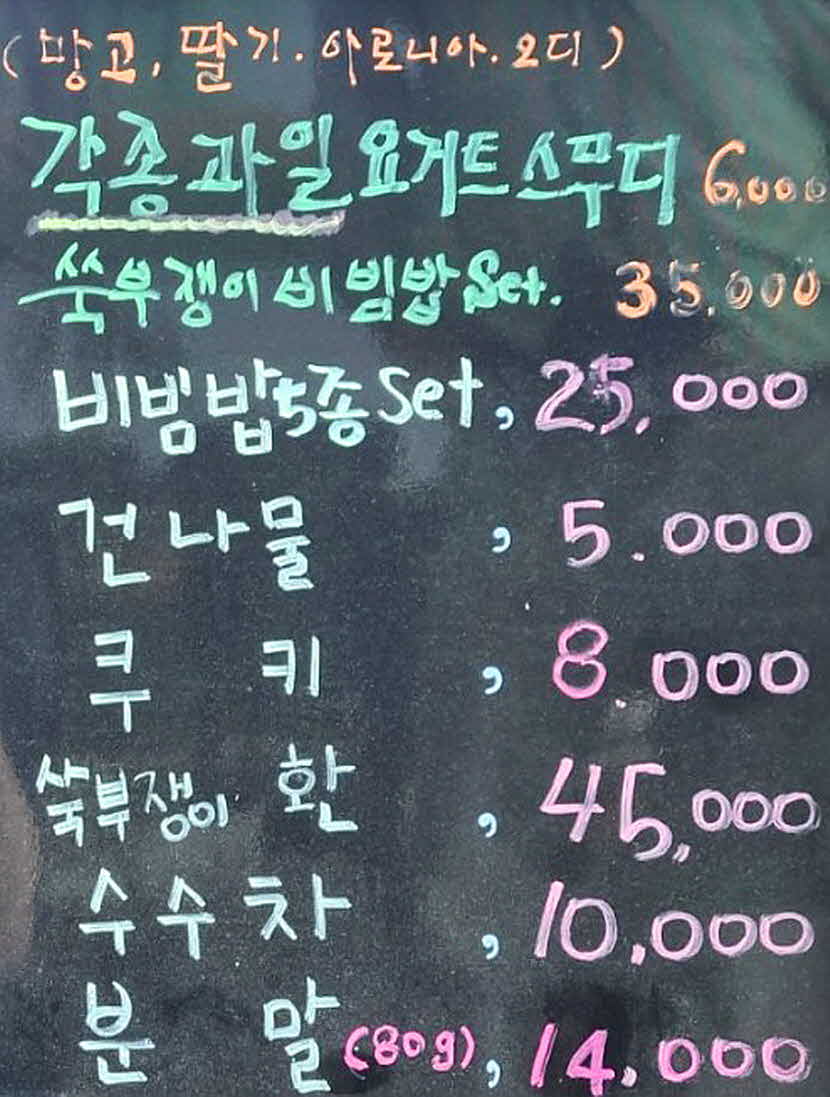 (망고, 딸기. 아로니아. 오디)
각종과일 요거트스무디 6,000
쑥부쟁이 비빔밥 Set. 35,000
비빔밥5종 Set, 25,000
건나물 , 5.000
쿠 키 , 8.000
쑥부쟁이 환 , 45,000
수수차 , 10,000
분 말 (80g), 14.000